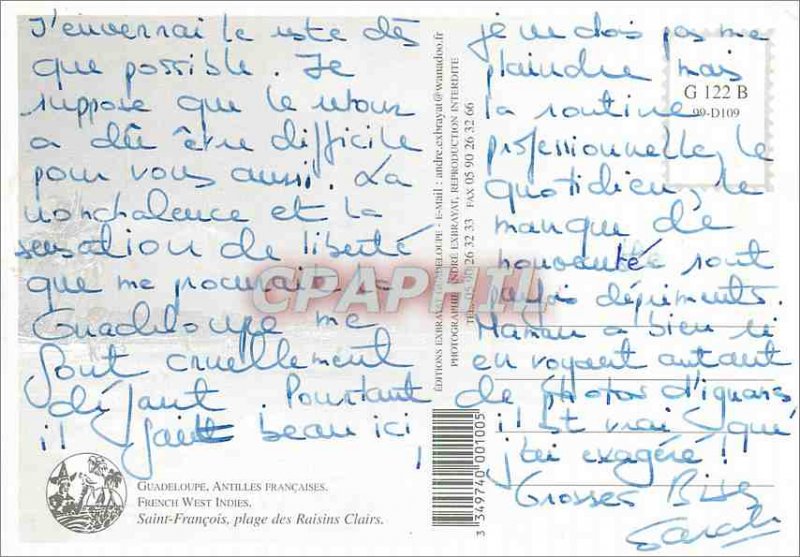 J'enverrai le reste dès
que possible. Je
suppose que le retour
a dû être difficile
pour vous aussi. La
nonchalence et la
sensation de liberté
que me procurait la
Guadeloupe me
font cruellement
défaut. Pourtant
il fait beau ici,
je ne dois pas me
plaindre mais
la routine
professionnelle, le
quotidien, le
manque de
nouveauté sont
parfois déprimants.
Maman a bien ri
en voyant autant
de photos d'iguans,
il est vrai que
j'ai exagéré !
Grosses Bises
Sarah
G 122 B
99-D109
ÉDITIONS EXBRAYAT GUADELOUPE - E-Mail : andre.exbrayat@wanadoo.fr
PHOTOGRAPHIE ANDRÉ EXBRAYAT, REPRODUCTION INTERDITE
TEL. 05 90 26 32 33 FAX 05 90 26 32 66
CPAPHIL
3 349740 001005
GUADELOUPE, ANTILLES FRANÇAISES.
FRENCH WEST INDIES.
Saint-François, plage des Raisins Clairs.